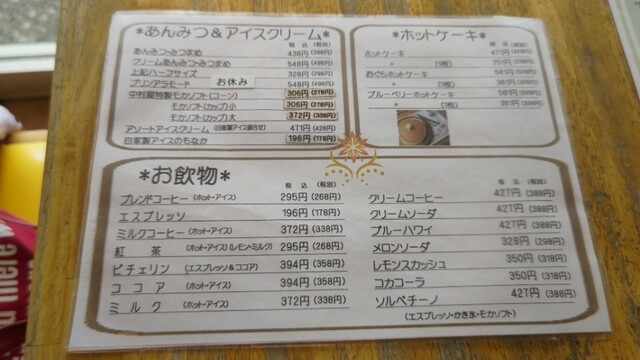 *あんみつ&アイスクリーム*
税込 (税別)
あんみつ・みつまめ 438円(398円)
クリームあんみつ・みつまめ 548円(498円)
上記ハーフサイズ 328円(298円)
プリンアラモード お休み 548円(498円)
中村屋特製モカソフト(コーン) 306円(278円)
モカソフト(カップ)小 306円(278円)
モカソフト(カップ)大 372円(338円)
アソートアイスクリーム (自家製アイス盛合せ) 471円(428円)
自家製アイスのもなか 196円(178円)
*ホットケーキ*
税込 (税別)
ホットケーキ
〃 (1枚)
おぐらホットケーキ
〃 (1枚)
ブルーベリーホットケーキ
〃 (1枚)
*お飲物*
税込 (税別)
ブレンドコーヒー (ホット・アイス) 295円(268円)
エスプレッソ 196円(178円)
ミルクコーヒー (ホット・アイス) 372円(338円)
紅茶 (ホット・アイス)(レモン・ミルク) 295円(268円)
ビチェリン (エスプレッソ&ココア) 394円(358円)
ココア (ホット・アイス) 394円(358円)
ミルク (ホット・アイス) 372円(338円)
税込 (税別)
クリームコーヒー 427円(388円)
クリームソーダ 427円(388円)
ブルーハワイ 427円(388円)
メロンソーダ 328円(298円)
レモンスカッシュ 350円(318円)
コカコーラ 350円(318円)
ソルベチーノ 427円(388円)
(エスプレッソ・かき氷・モカソフト)